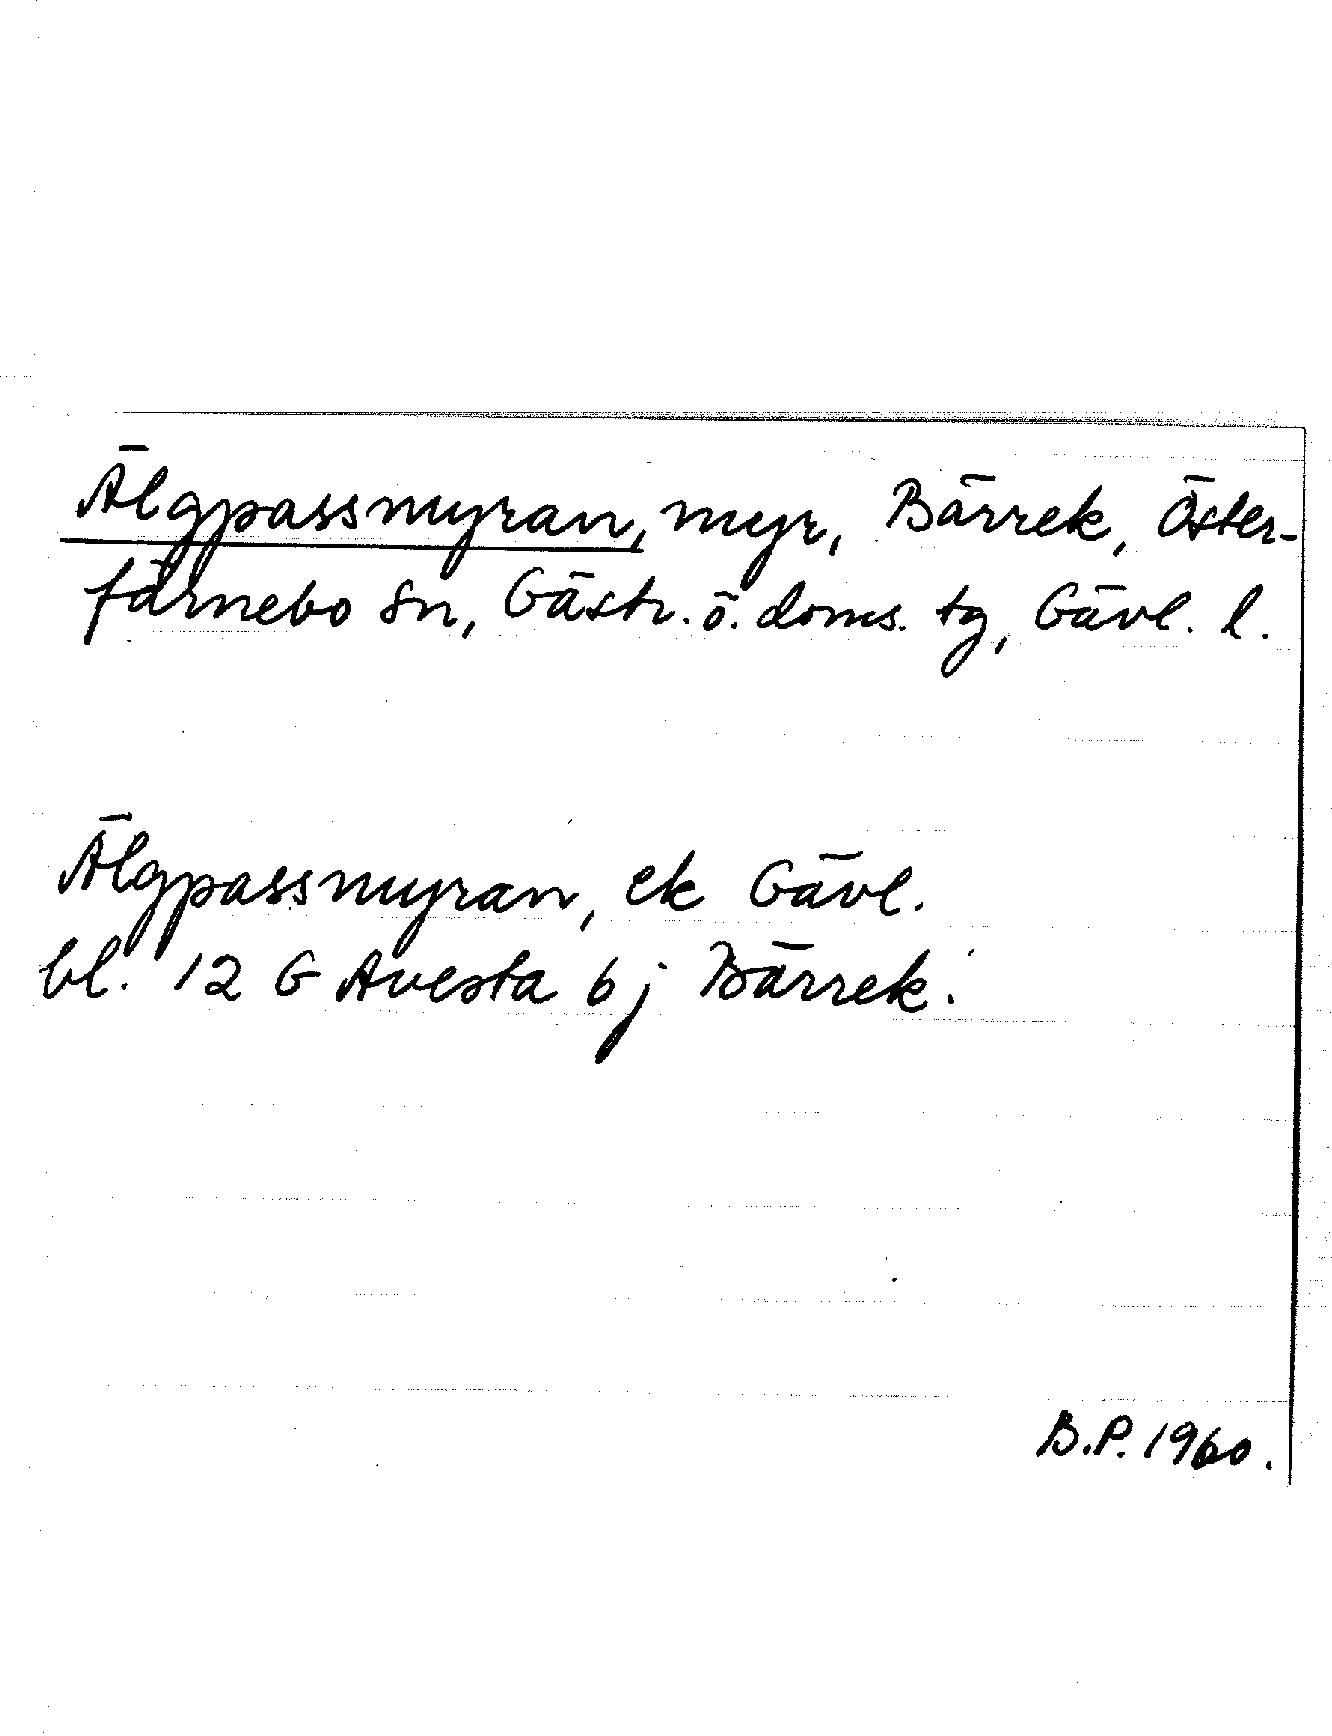 Älgpassmyran, myr, Bärrek, Öster-
färnebo sn, Gästr. ö. doms. tg, Gävl. l.
Älgpassmyran, ek Gävl.
bl. 12 G Avesta 6 j Bärrek.
B.P. 1960.